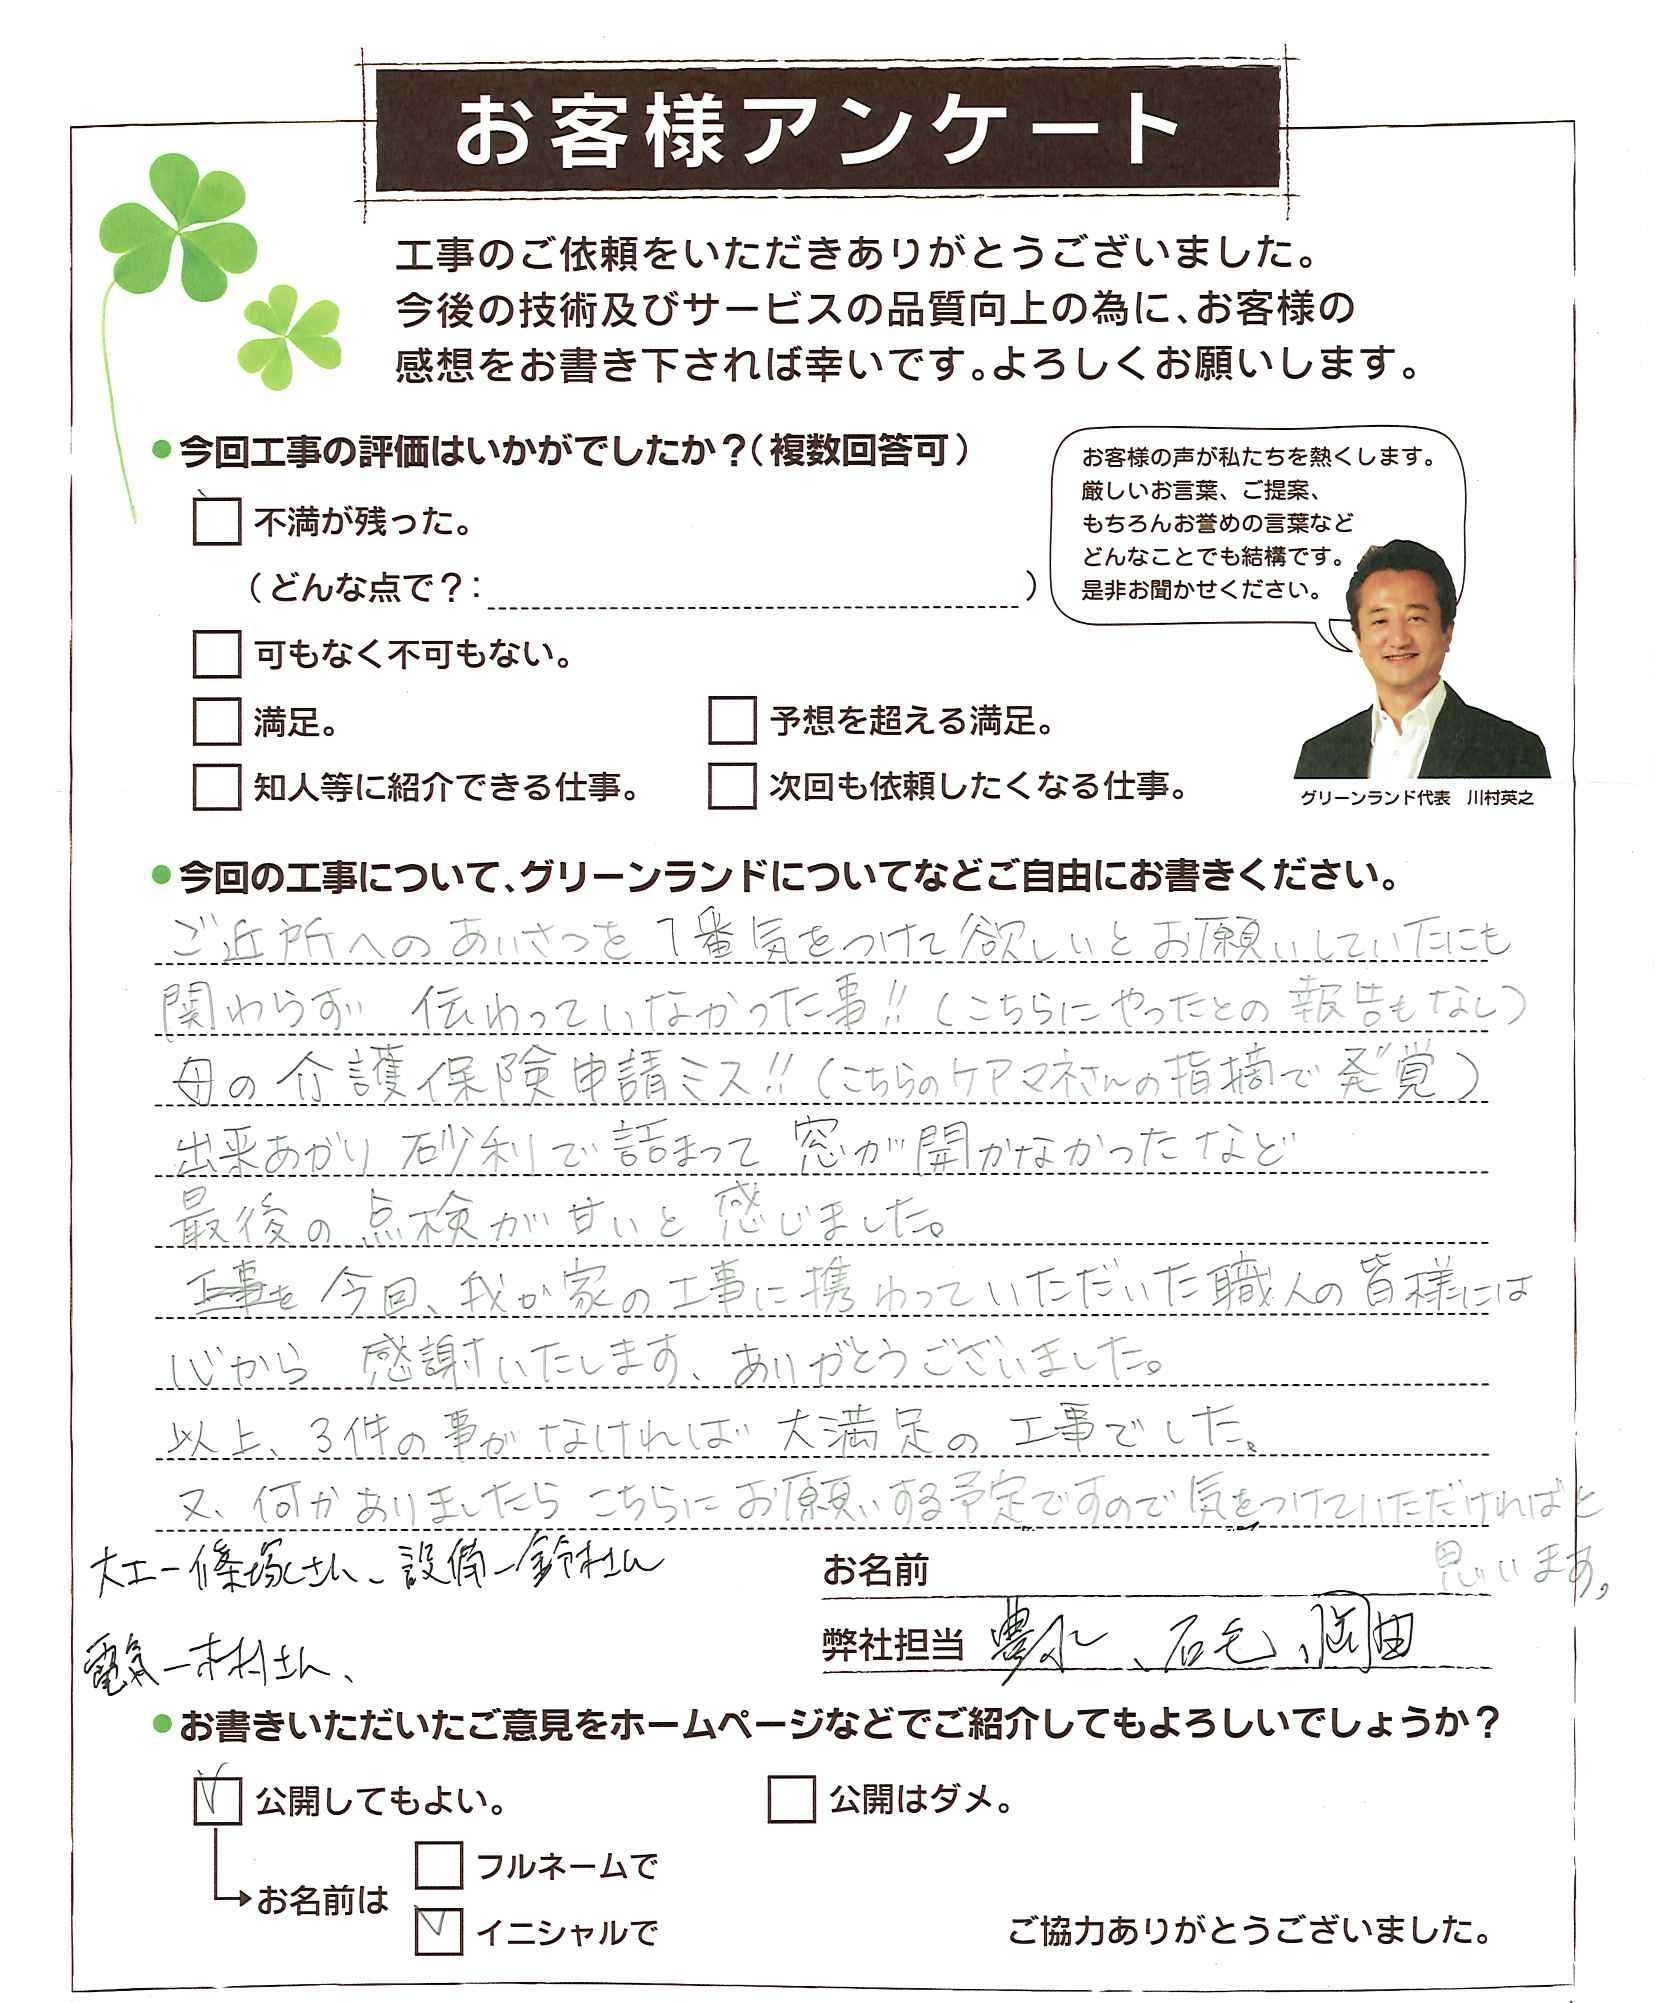 お客様アンケート
工事のご依頼をいただきありがとうございました。
今後の技術及びサービスの品質向上の為に、お客様の
感想をお書き下されば幸いです。よろしくお願いします。
●今回工事の評価はいかがでしたか？（複数回答可）
不満が残った。
（どんな点で？：　）
可もなく不可もない。
満足。
予想を超える満足。
知人等に紹介できる仕事。
次回も依頼したくなる仕事。
お客様の声が私たちを熱くします。
厳しいお言葉、ご提案、
もちろんお誉めの言葉など
どんなことでも結構です。
是非お聞かせください。
グリーンランド代表　川村英之
●今回の工事について、グリーンランドについてなどご自由にお書きください。
ご近所へのあいさつを1番気をつけて欲しいとお願いしていたにも
関わらず 伝わっていなかった事!!（こちらにやったとの報告もなし）
母の介護保険申請ミス!!（こちらのケアマネさんの指摘で発覚）
出来あがり 砂利で詰まって 窓が開かなかったなど
最後の点検が甘いと感じました。
工事を 今回、我が家の工事に携わっていただいた職人の皆様には
心から 感謝いたします、ありがとうございました。
以上、3件の事がなければ 大満足の工事でした。
又、何かありましたら こちらにお願いする予定ですので気をつけていただければと
思います。
大工ー篠塚さん、設備ー鈴木さん
電気ー木村さん、
お名前
弊社担当 豊永、石毛、
●お書きいただいたご意見をホームページなどでご紹介してもよろしいでしょうか？
公開してもよい。
公開はダメ。
お名前は
フルネームで
イニシャルで
ご協力ありがとうございました。